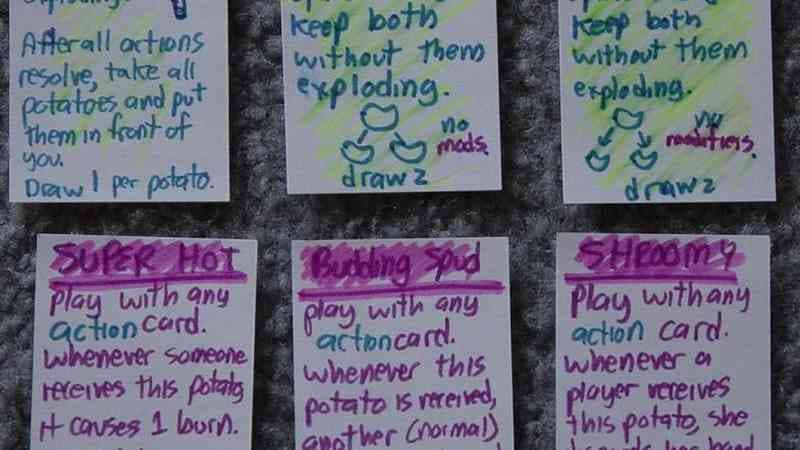 exploding.
After all actions
resolve, take all
potatoes and put
them in front of
you.
Draw 1 per potato.
keep both
without them
exploding.
no
mods.
draw 2
keep both
without them
exploding.
no
modifiers.
draw 2
SUPER HOT
play with any
action card.
whenever someone
receives this potato,
it causes 1 burn.
Budding Spud
play with any
action card.
whenever this
potato is received,
another (normal)
SHROOMY
Play with any
action card.
whenever a
player receives
this potato, she